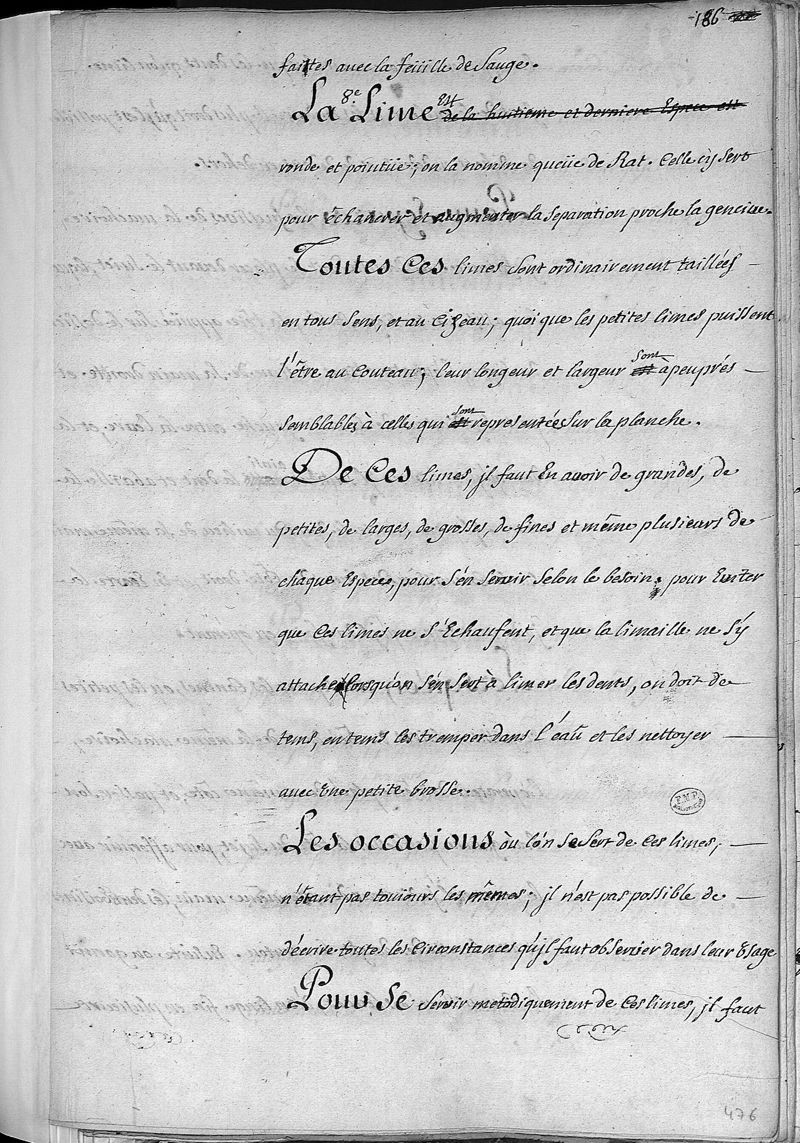 186
faittes avec la feüille de Sauge.
La 8e. Lime Est de la huitieme et derniere Espece est
ronde et pointüe; on la nomme queüe de Rat. Celle cÿ sert
pour Échancrer et augmenter la separation proche la gencive.
Toutes Ces limes sont ordinairement taillées
en tous sens, et au Cizeau; quoique les petites limes puissent
l'être au Couteau; leur longeur et largeur est sont àpeuprés
semblables à celles qui est sont representées sur la planche.
De Ces limes, jl faut En avoir de grandes, de
petites, de larges, de grosses, de fines et même plusieurs de
chaque Espece, pour s'én servir selon le besoin; pour Eviter
que Ces limes ne s'Echaufent, et que la limaille ne s'ÿ
attache lorsqu'on s'én sert à limer les dents, on doit de
tems, en tems les tremper dans l'éaü et les nettoyer
avec Une petite brosse.
Les occasions òu lón se sert de Ces limes,
n'étant pas toujours les mêmes; jl n'ést pas possible de
décrire toutes les Circonstances qu'jl faut observer dans leur Usage
Pour Se servir metodiquement de Ces limes, jl faut
476